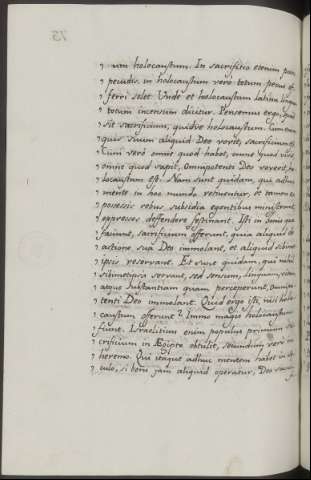 75
" um holocaustum. In sacrificio etenim pars
" pecudis, in holocaustum vero totum pecus of-
" ferri solet. Unde et holocaustum latina lingua
" totum incensum dicitur. Pensemus ergo, quid
" sit sacrificium, quidve holocaustum. Cum enim
" quis suum aliquid Deo vovet, sacrificium est
" Cum vero omne quod habet, omne quod vivit
" omne quod sapit, omnipotenti Deo voverit, ho-
" locaustum est. Nam sunt quidam, qui adhuc
" mente in hoc mundo retinentur, et tamen ex
" possessis rebus subsidia egentibus ministrant
" oppressos deffendere festinant. Isti in bonis quae
" faciunt, sacrificium offerunt, quia aliquid de
" actione sua Deo immolant, et aliquid sibimet
" ipsis reservant. Et sunt quidam, qui nihil
" sibimetipsis servant, sed sensum, linguam, vitam
" atque substantiam quam perceperunt, omnipo-
" tenti Deo immolant. Quid ergo isti, nisi holo-
" caustum offerunt? Immo magis holocaustum
" fiunt. Israeliticus enim populus primum sa-
" crificium in Ægipto obtulit, secundum vero in
" heremo. Qui itaque adhuc mentem habet in sæ-
" culo, si boni jam aliquid operatur, Deo